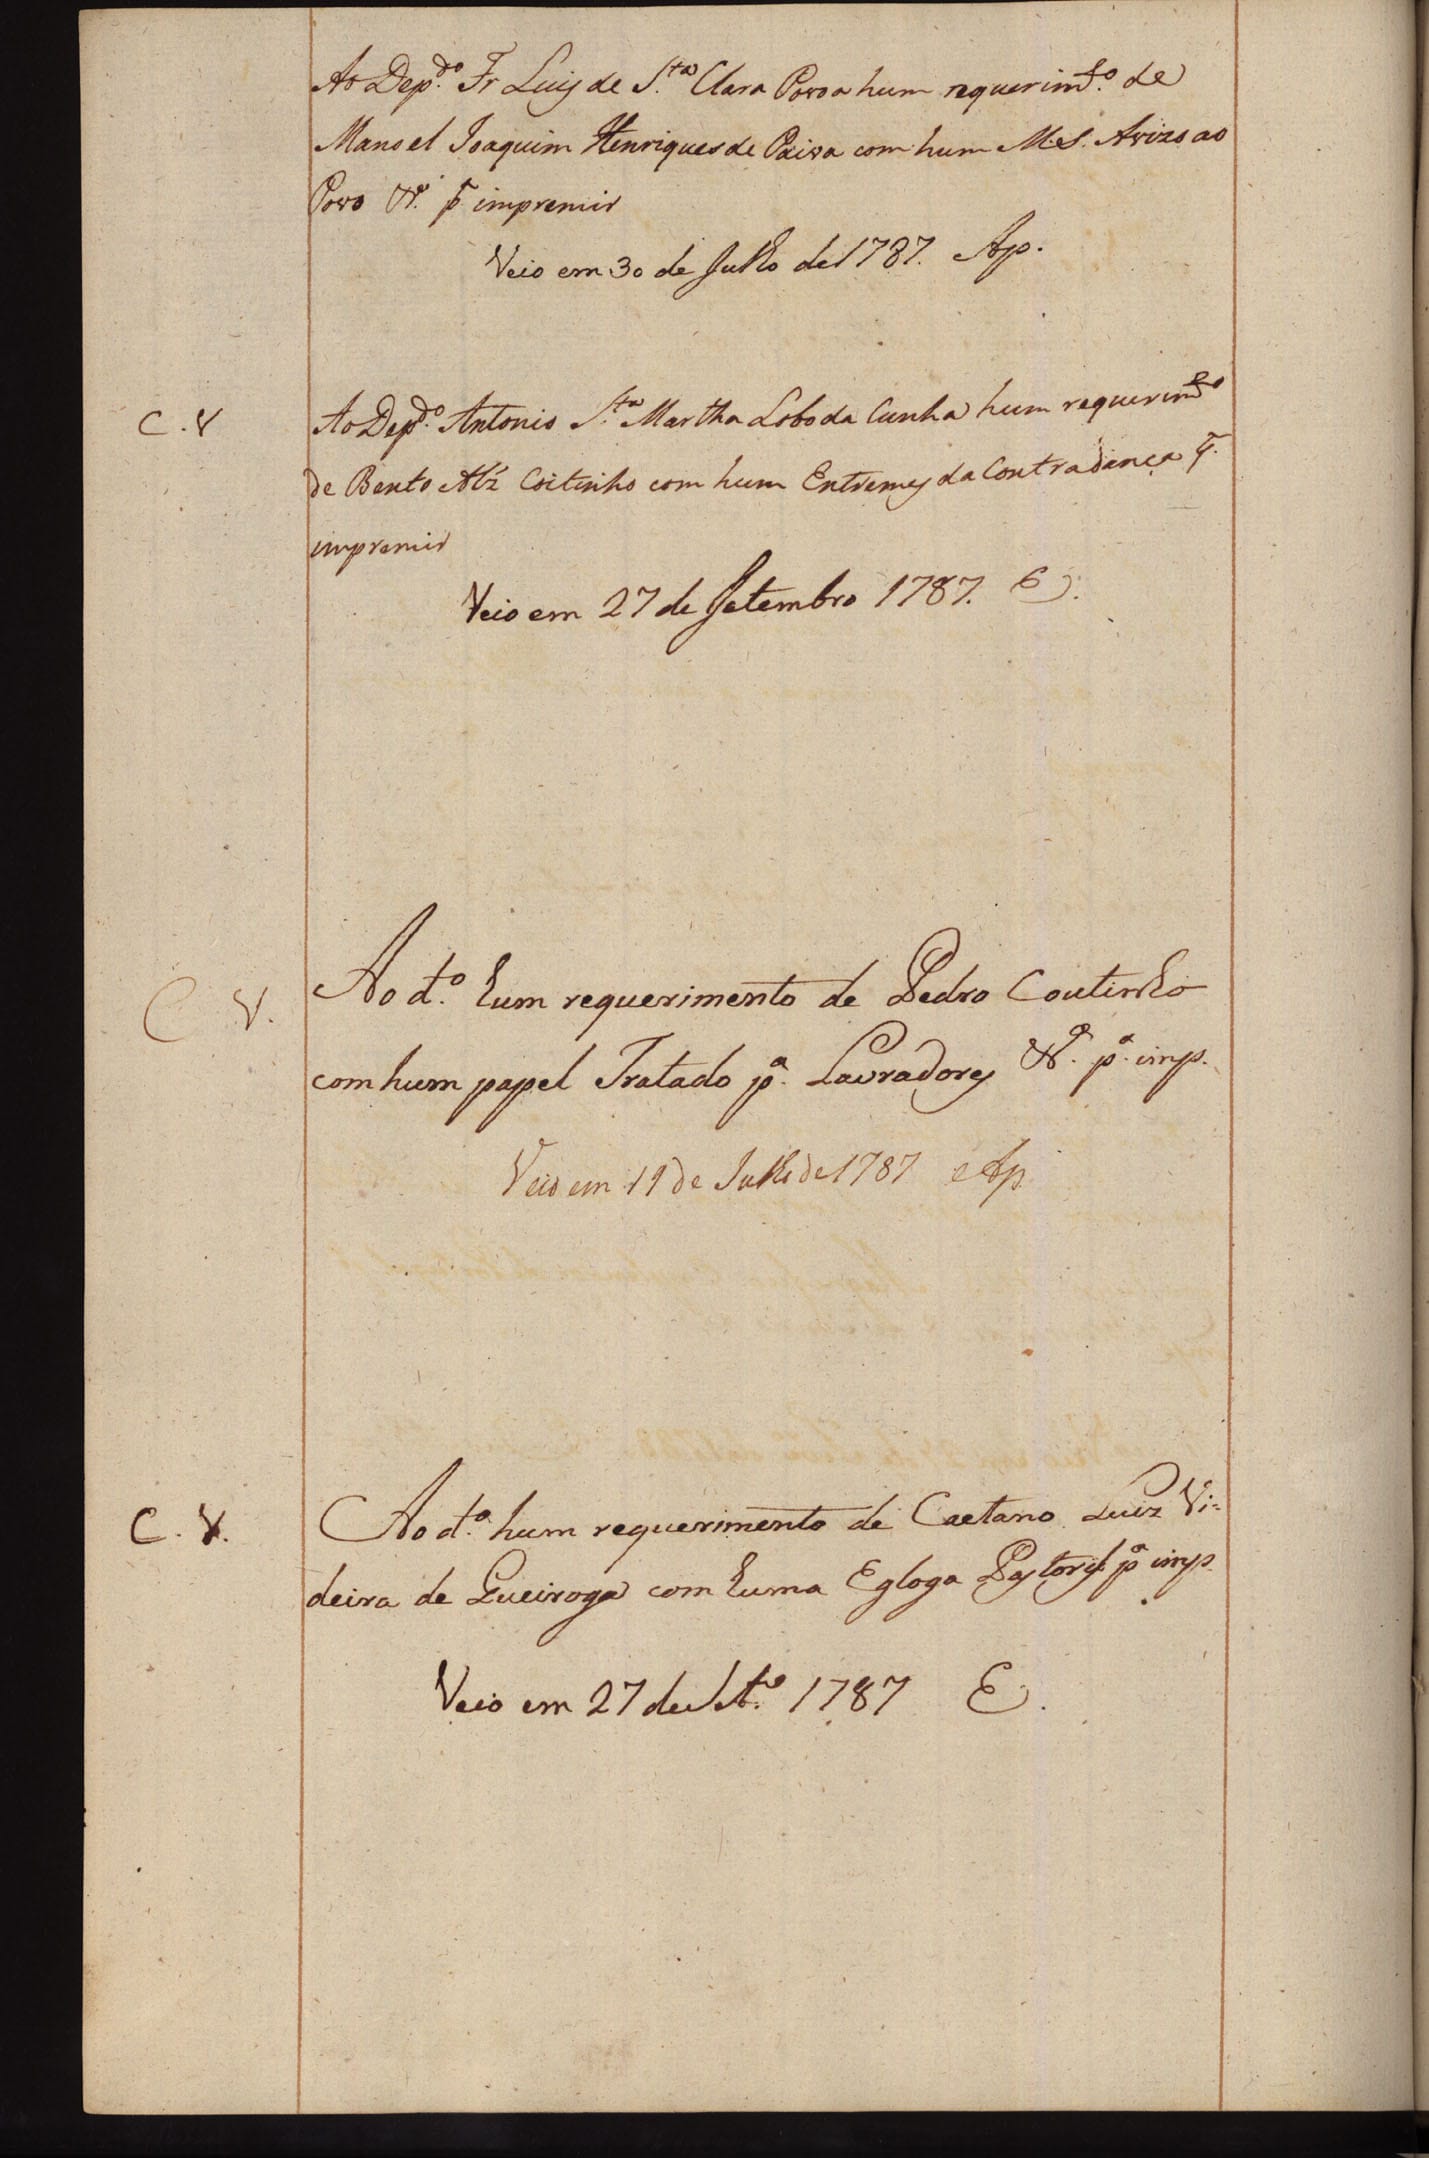 Ao Dep.do Fr Luis de S.ta Clara Povoa hum requerim.to de
Manoel Joaquim Henriques de Paiva com hum M.S. Avizo ao
Povo &.a p.a impremir
Veio em 30 de Julho de 1787. Ap.
C. V
Ao Dep.do Antonio S.ta Martha Lobo da Cunha hum requerim.to
de Bento Alz Coitinho com hum Entremes da Contradança p.a
impremir
Veio em 27 de Setembro 1787. E.
C V.
Ao d.o hum requerimento de Pedro Coutinho
com hum papel Tratado p.a Lavradores &.a p.a imp.
Veio em 19 de Julho de 1787 Ap
C. V.
Ao d.o hum requerimento de Caetano Luiz Vi=
deira de Queiroga com huma Egloga Pastoril p.a imp.
Veio em 27 de Set.o 1787 E.